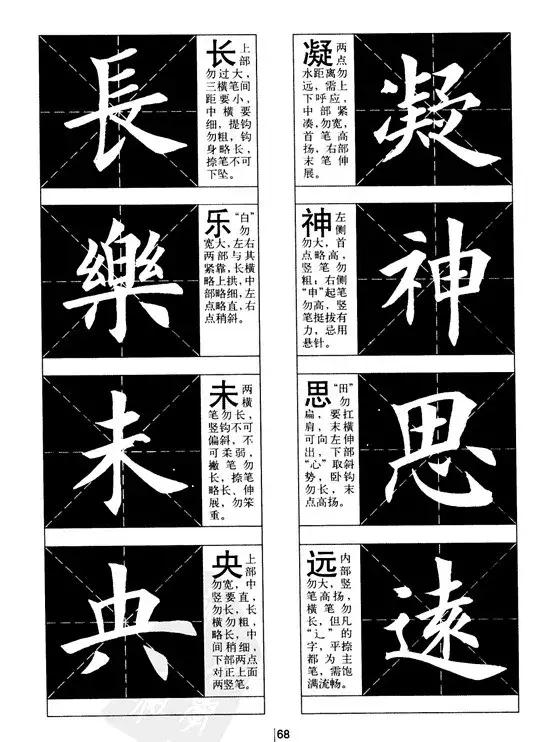 長
长 上部
勿过大，
三横笔间
距要小，
中横要
细，提钩
勿粗，钩
身略长，
捺笔不可
下坠。
樂
乐 “白”勿
宽大，左右
两部与其
紧靠，长横
略上拱，中
部略细，左
点略直，右
点稍斜。
未
未 两横
笔勿长，
竖钩不可
偏斜，不
可柔弱，
撇笔勿
长，捺笔
略长、伸
展，勿笨
重。
央
央 上部
勿宽，中
竖要直，
勿长，长
横勿粗，
略长，中
间稍细，
下部两点
对正上面
两竖笔。
凝
凝 两点
水距离勿
远，需上
下呼应，
中部紧
凑，勿宽，
首笔高
扬，右部
末笔伸
展。
神
神 左侧
勿大，首
点略高，
竖笔勿
粗；右侧
“申”起笔
勿高，竖
笔挺拔有
力，忌用
悬针。
思
思 “田”勿
扁，要扛
肩，末横
可向左伸
出，下部
“心”取斜
势，卧钩
勿长，末
点高扬。
遠
远 内部
勿大，竖
笔高扬，
横笔勿
长，但凡
“辶”的
字，平捺
都为主
笔，需饱
满流畅。
68